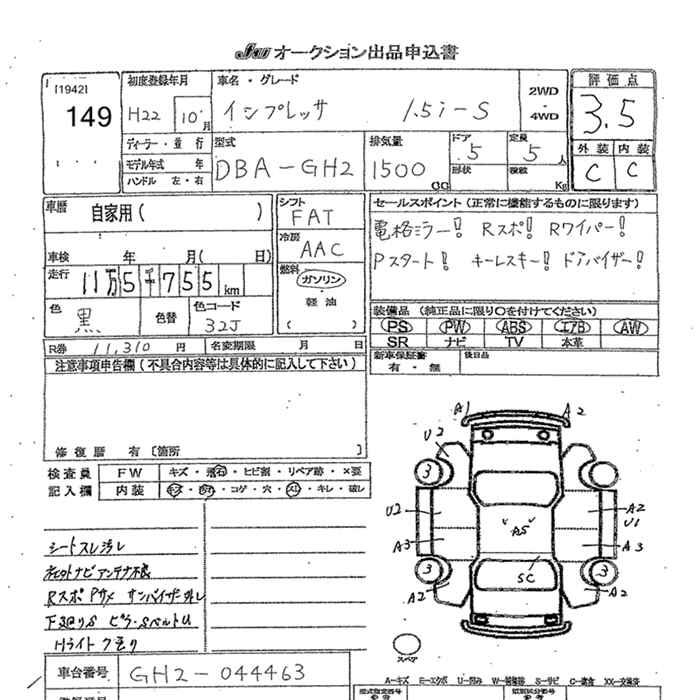 JAW オークション出品申込書
[1942]
149
初度登録年月
H22 10月
ディーラー・並行
モデル年式 年
ハンドル 左・右
車名・グレード
インプレッサ 1.5i-S
2WD
・
4WD
評価点
3.5
外装 内装
C C
型式
DBA-GH2
排気量
1500 CC
ドア
5
形状
定員
5人
積載
Kg
車歴
自家用( )
車検 年 月( 日)
走行 11万5千755km
色
黒
色替
色コード
32J
シフト
FAT
冷房
AAC
燃料
ガソリン
・
軽油
( )
セールスポイント(正常に機能するものに限ります)
電格ミラー! Rスポ! Rワイパー!
Pスタート! キーレスキー! ドアバイザー!
装備品(純正品に限り○を付けてください)
PS PW ABS エアB AW
SR ナビ TV 本革
R券 11,310円 名変期限 月 日
新車保証書
有・無
後日品
注意事項申告欄(不具合内容等は具体的に記入して下さい)
修復歴 有〔箇所 〕
検査員
記入欄
FW キズ・飛石・ヒビ割・リペア跡・×要
内装 キズ・汚れ・コゲ・穴・スレ・キレ・破レ
シートスレ汚レ
社外ナビアンテナ不良
RスポPサメ サンバイザー外レ
F廻りS ピラ・SベルトU
Hライトクモり
A1 A2
U2
3
U2 A2
U1
A3 A3
AS
3 3
SC
A2 A2
スペア
A=キズ E=エクボ U=凹み W=補修跡 S=サビ C=腐食 XX=交換済
車台番号 GH2-044463
型式指定番号 類別区分番号